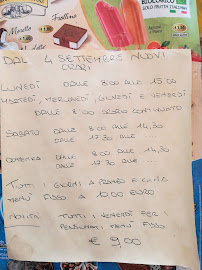 BIOLOGICO
SOLO FRUTTA ITALIANA
Fiordilino
Moretto
DAL 4 SETTEMBRE NUOVI
ORARI
LUNEDÌ DALLE 8:00 ALLE 15:00
MARTEDÌ, MERCOLEDÌ, GIOVEDÌ E VENERDÌ
DALLE 8:00 ORARIO CONTINUATO
SABATO DALLE 8:00 ALLE 14,30
DALLE 17:30 ALLE ...
DOMENICA DALLE 8:00 ALLE 14,30
DALLE 17:30 ALLE ...
TUTTI I GIORNI A PRANZO E CENA
MENÙ FISSO A 10,00 EURO
NOVITÀ TUTTI I VENERDÌ PER I
PENSIONATI MENÙ FISSO
€ 9,00